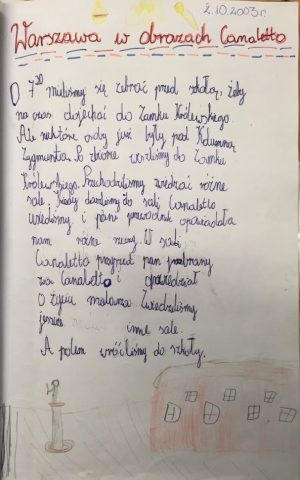 2.10.2003 r.
Warszawa w obrazach Canaletto
O 7³⁰ mieliśmy się zebrać przed szkołą, żeby
na czas dojechać do Zamku Królewskiego.
Ale niektóre osoby już były pod Kolumną
Zygmunta. Po zbiorce weszliśmy do Zamku
Królewskiego. Przechodziliśmy zwiedzać różne
sale. Kiedy doszliśmy do sali Canaletto
usiedliśmy i pani przewodnik opowiadała
nam różne rzeczy. W sali
Canaletto przyszedł pan przebrany
za Canaletto i opowiedział
o życiu malarza. Zwiedzaliśmy
jeszcze inne sale.
A potem wróciliśmy do szkoły.